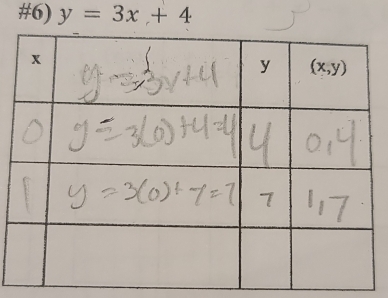 #6) y = 3x + 4
x y = 3x+4 y (x,y)
0 y = 3(0)+4=4 4 0,4
1 y = 3(0)+7=7 7 1,7